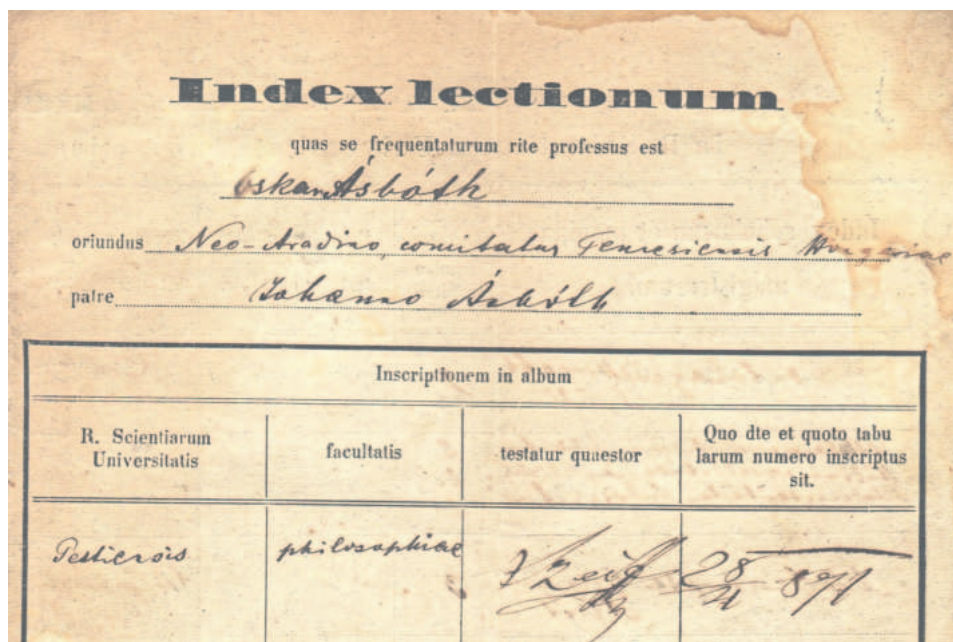 Index lectionum
quas se frequentaturum rite professus est
Oskar Ásbóth
oriundus Neo-Aradino, comitatus Temesiensis Hungariae
patre Johanno Ásbóth
Inscriptionem in album
R. Scientiarum
Universitatis
facultatis
testatur quaestor
Quo dte et quoto tabu
larum numero inscriptus
sit.
philosophiae
28/4 871